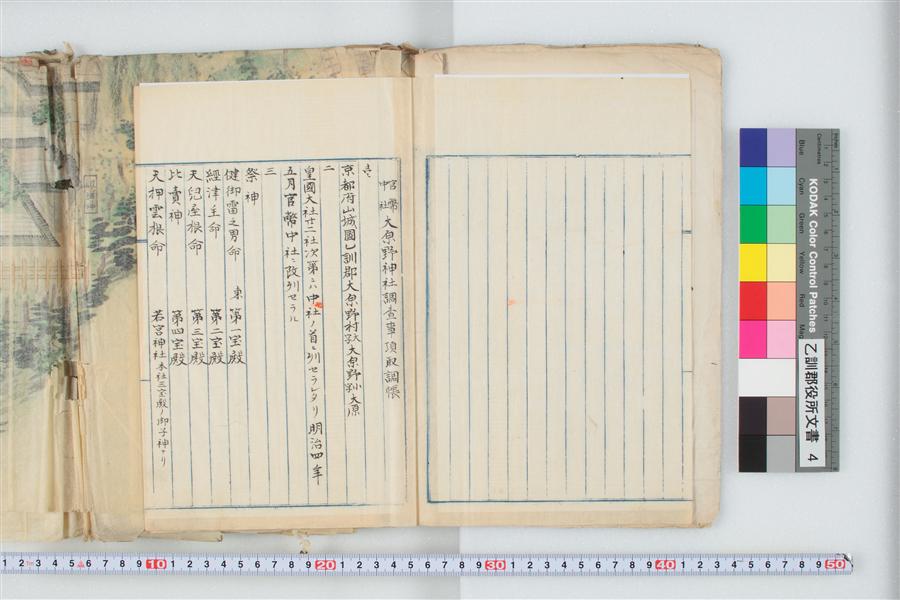 官幣中社 大原野神社調査事項取調帳
壱
京都府山城國乙訓郡大原野村字大原野小字大原
二
皇國大社廿二社次第ニハ中社ノ首ニ列セラレタリ明治四年
五月官幣中社ニ改列セラル
三
祭神
健御雷之男命 東 第一宝殿
經津主命 第二宝殿
天兒屋根命 第三宝殿
比賣神 第四宝殿
天押雲根命 若宮神社 本社三宝殿ノ御子神ナリ
乙訓郡役所文書 4
KODAK Color Control Patches
Blue Cyan Green Yellow Red
Centimetres
1 2 3 4 5 6 7 8 9 10 1 2 3 4 5 6 7 8 9 20 1 2 3 4 5 6 7 8 9 30 1 2 3 4 5 6 7 8 9 40 1 2 3 4 5 6 7 8 9 50